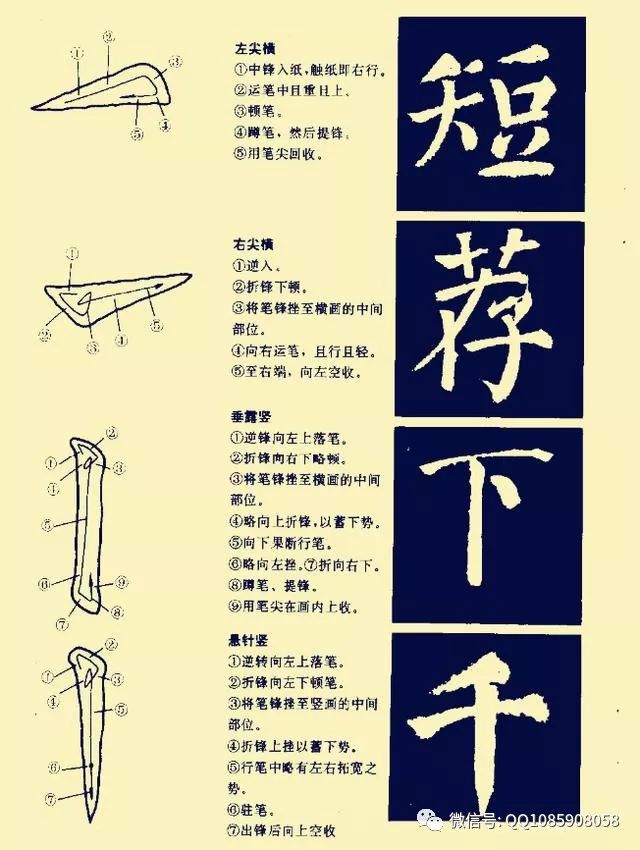 左尖横
①中锋入纸，触纸即右行。
②运笔中且重且上。
③顿笔。
④蹲笔，然后提锋。
⑤用笔尖回收。
短
右尖横
①逆入。
②折锋下顿。
③将笔锋挫至横画的中间
部位。
④向右运笔，且行且轻。
⑤至右端，向左空收。
荐
垂露竖
①逆锋向左上落笔。
②折锋向右下略顿。
③将笔锋挫至横画的中间
部位。
④略向上折锋，以蓄下势。
⑤向下果断行笔。
⑥略向左挫。⑦折向右下。
⑧蹲笔、提锋。
⑨用笔尖在画内上收。
下
悬针竖
①逆转向左上落笔。
②折锋向左下顿笔。
③将笔锋挫至竖画的中间
部位。
④折锋上挫以蓄下势。
⑤行笔中略有左右拓宽之
势。
⑥驻笔。
⑦出锋后向上空收
千
微信号: QQ1085908058
① ② ③ ④ ⑤
① ② ③ ④ ⑤
① ② ③ ④ ⑤ ⑥ ⑦ ⑧ ⑨
① ② ③ ④ ⑤ ⑥ ⑦